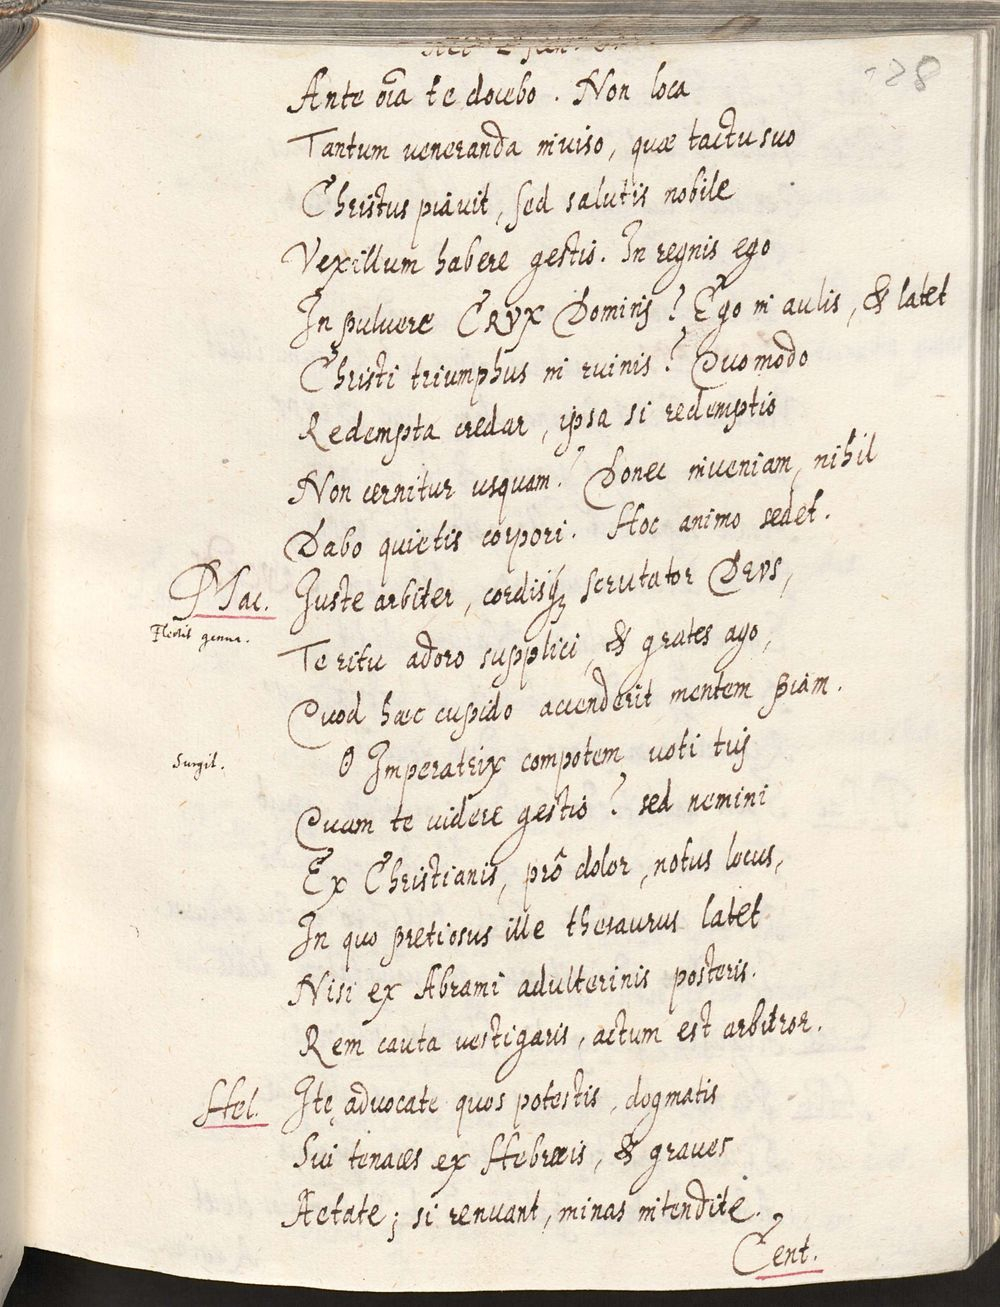 Ante oĩa te docebo. Non loca
Tantum veneranda inviso, quæ tactu suo
Christus piavit, sed salutis nobile
Vexillum habere gestio. In regnis ego
In pulvere CRVX Dominis? Ego in aulis, & latet
Christi triumphus in ruinis? Quomodo
Redempta credar, ipsa si redemptio
Non cernitur usquam? Donec inveniam, nihil
Dabo quietis corpori. Hoc animo sedet.
Mac. Iuste arbiter, cordisq; scrutator DEVS,
Flectit genua.
Te ritu adoro supplici, & grates ago,
Quod hæc cupido accenderit mentem piam.
Surgit.
O Imperatrix compotem voti tuj
Quam te videre gestio? sed nemini
Ex Christianis, prô dolor, notus locus,
In quo pretiosus ille thesaurus latet
Nisi ex Abrami adulterinis posteris.
Rem cauta vestigaris, actum est arbitror.
Hel. Ite advocate quos potestis, dogmatis
Sui tenaces ex Hebræis, & graves
Aetate; si renuant, minas intendite.
Cent.